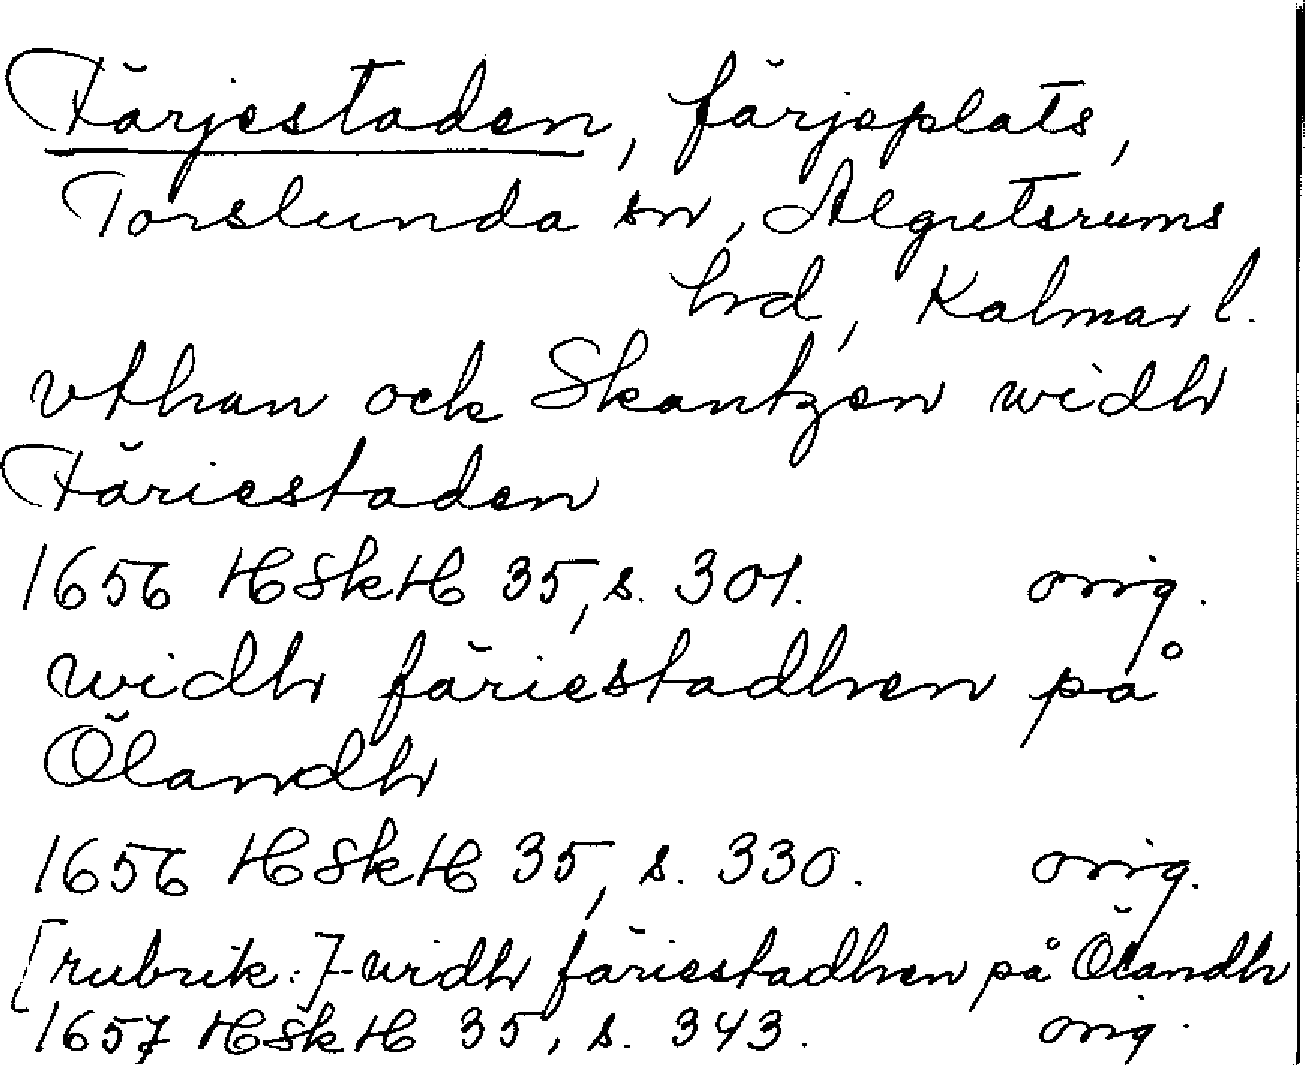 Färjestaden, färjeplats,
Torslunda sn, Algutsrums
hrd, Kalmar l.
vthan och Skantzen widh
Färiestaden
1656 HSkH 35, s. 301. orig.
widh färiestadhen på
Ölandh
1656 HSkH 35, s. 330. orig.
[rubrik:] widh färiestadhen på Ölandh
1657 HSkH 35, s. 343. orig.